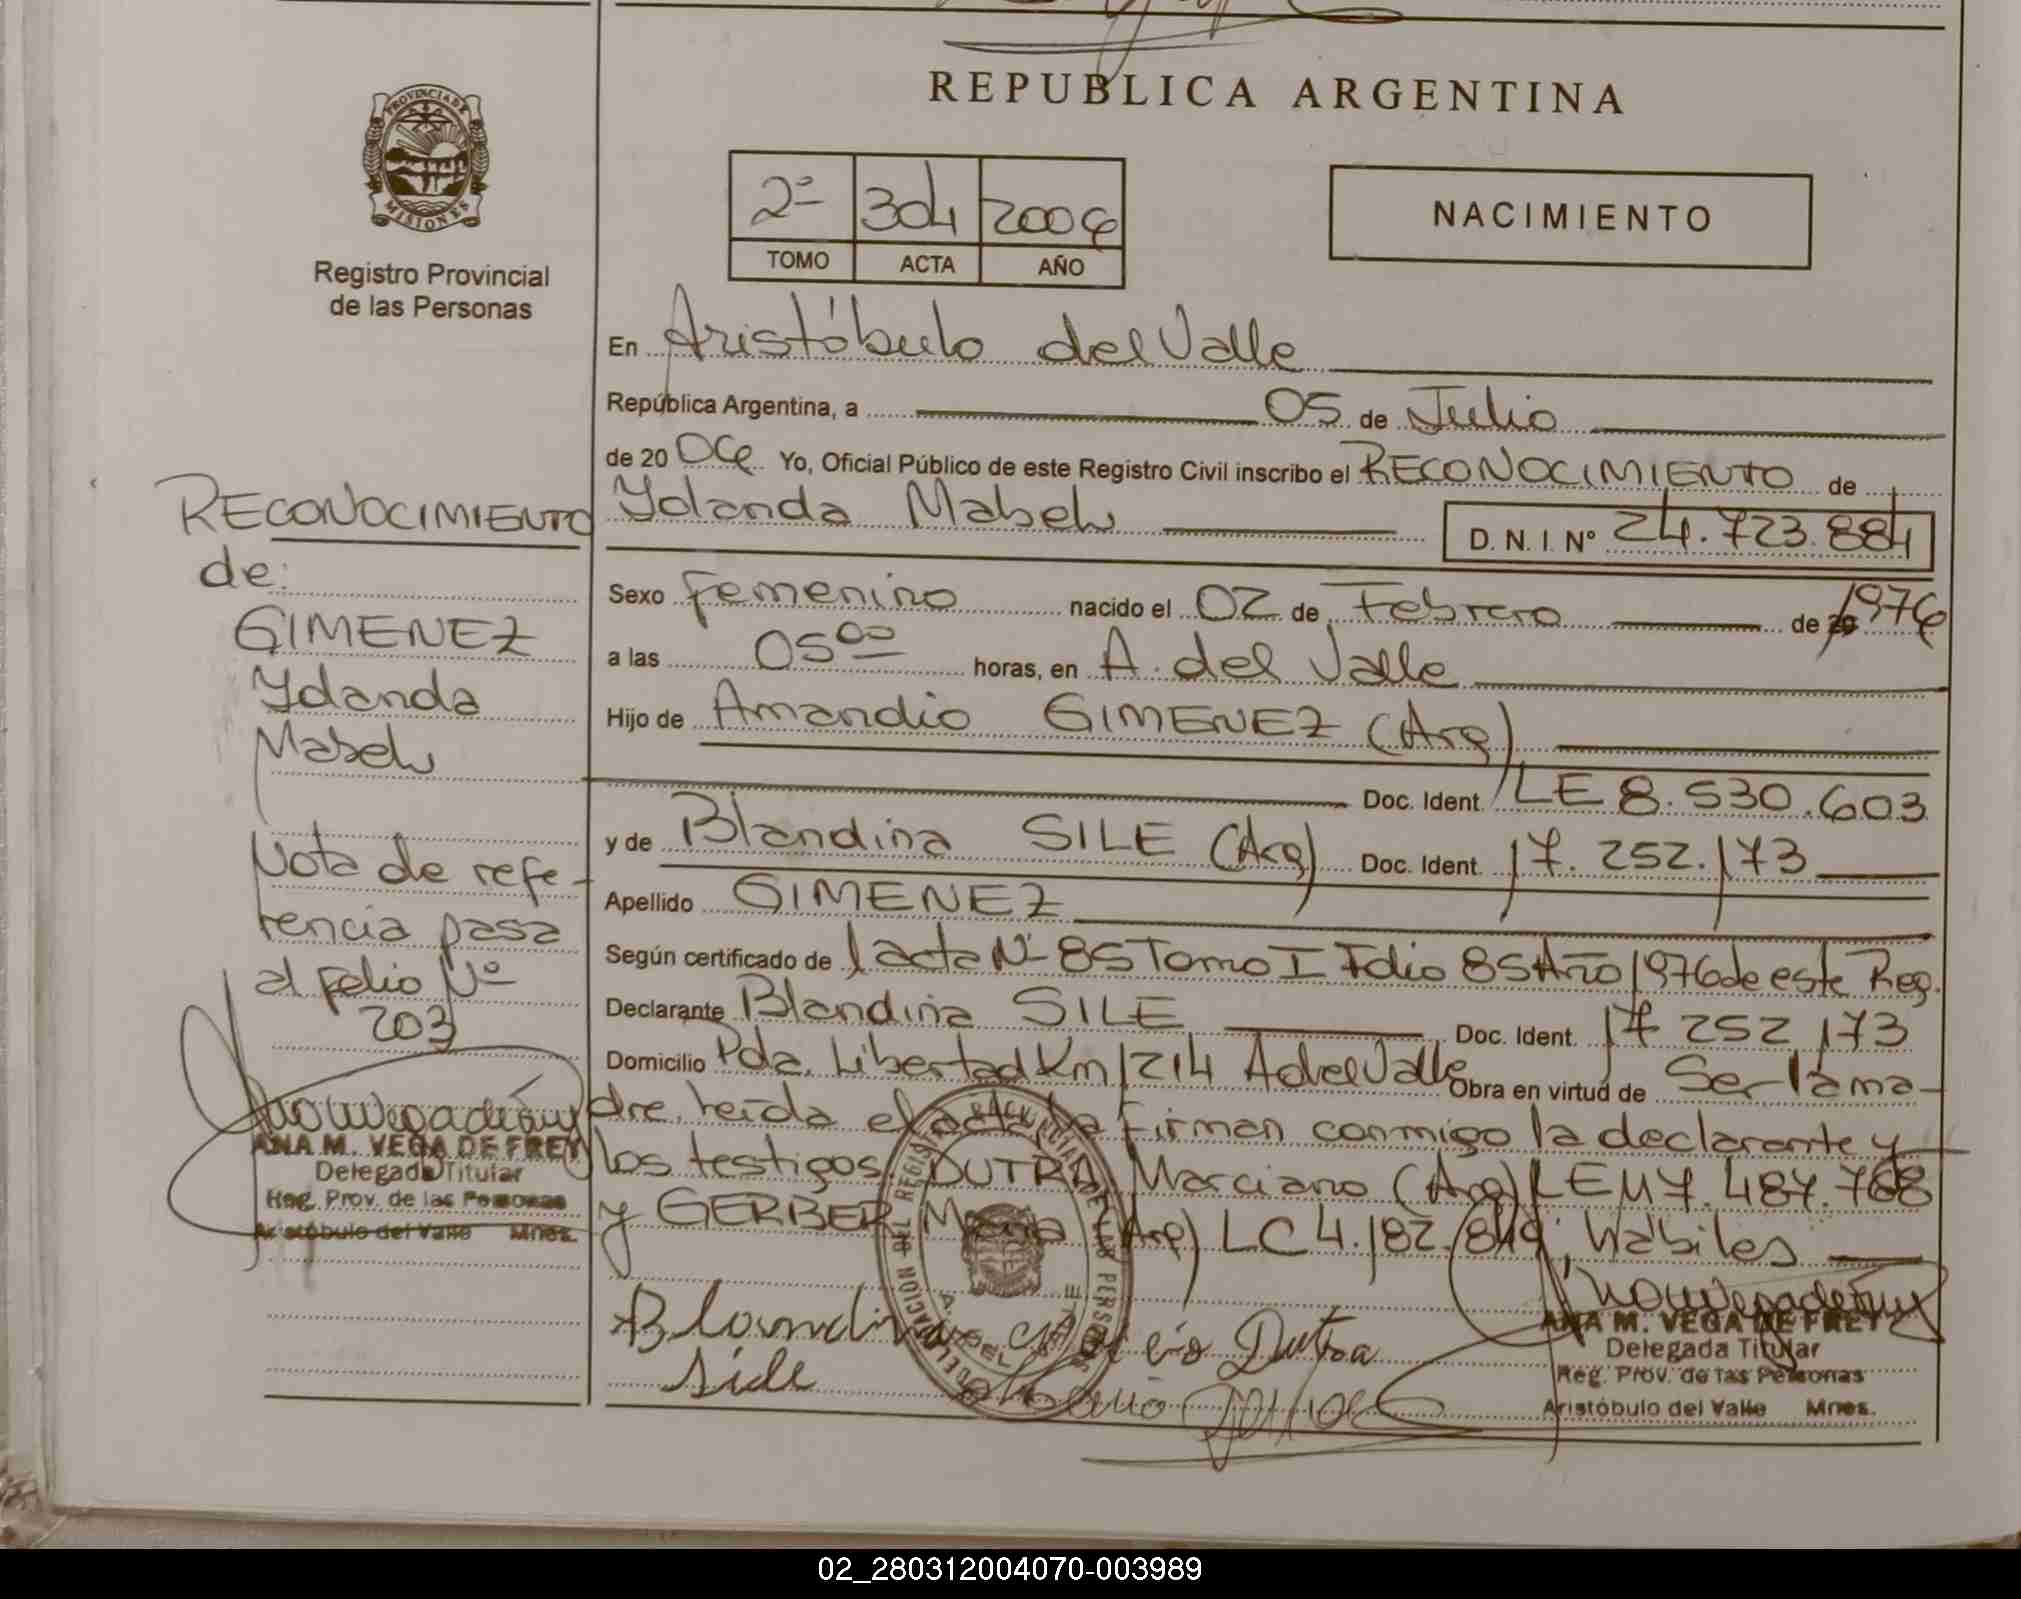 REPUBLICA ARGENTINA
PROVINCIA DE
MISIONES
Registro Provincial
de las Personas
2º 304 2006
TOMO ACTA AÑO
NACIMIENTO
En Aristóbulo del Valle
República Argentina, a 05 de Julio
de 20 06 Yo, Oficial Público de este Registro Civil inscribo el RECONOCIMIENTO de
Yolanda Mabel D. N. I. Nº 24.723.884
Sexo Femenino nacido el 02 de Febrero de 1976
a las 05 00 horas, en A. del Valle
Hijo de Amandio GIMENEZ (Arg)
Doc. Ident. LE 8.530.603
y de Blandina SILE (Arg) Doc. Ident. 17.252.173
Apellido GIMENEZ
Según certificado de 1 acta Nº 85 Tomo I Folio 85 Año 1976 de este Reg.
Declarante Blandina SILE Doc. Ident. 17 252 173
Domicilio Pda. Libertad Km 1214 A del Valle Obra en virtud de Ser la ma-
dre, leída el acta la firman conmigo la declarante y
los testigos: DUTRA Marciano (Arg) LE M 7.487.768
y GERBER Maria (Arg) LC 4.182.849; Hábiles
Blandina
Sile
Dutra
ANA M. VEGA DE FREY
Delegada Titular
Reg. Prov. de las Personas
Aristóbulo del Valle Mnes.
RECONOCIMIENTO
de:
GIMENEZ
Yolanda
Mabel
Nota de refe-
rencia pasa
al folio Nº
203
ANA M. VEGA DE FREY
Delegada Titular
Reg. Prov. de las Personas
Aristóbulo del Valle Mnes.
02_280312004070-003989